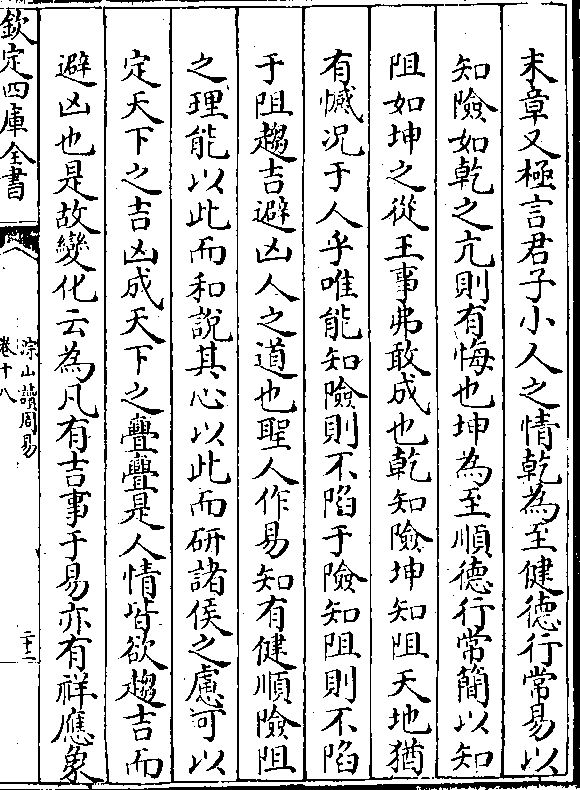 末章又極言君子小人之情乾為至健德行常易以
知險如乾之亢則有悔也坤為至順德行常簡以知
阻如坤之從王事弗敢成也乾知險坤知阻天地猶
有憾况于人乎唯能知險則不陷于險知阻則不陷
于阻趨吉避凶人之道也聖人作易知有健順險阻
之理能以此而和說其心以此而研諸侯之慮可以
定天下之吉凶成天下之亹亹是人情皆欲趨吉而
避凶也是故變化云為凡有吉事于易亦有祥應象
欽定四庫全書
淙山讀周易
卷十八
二十二